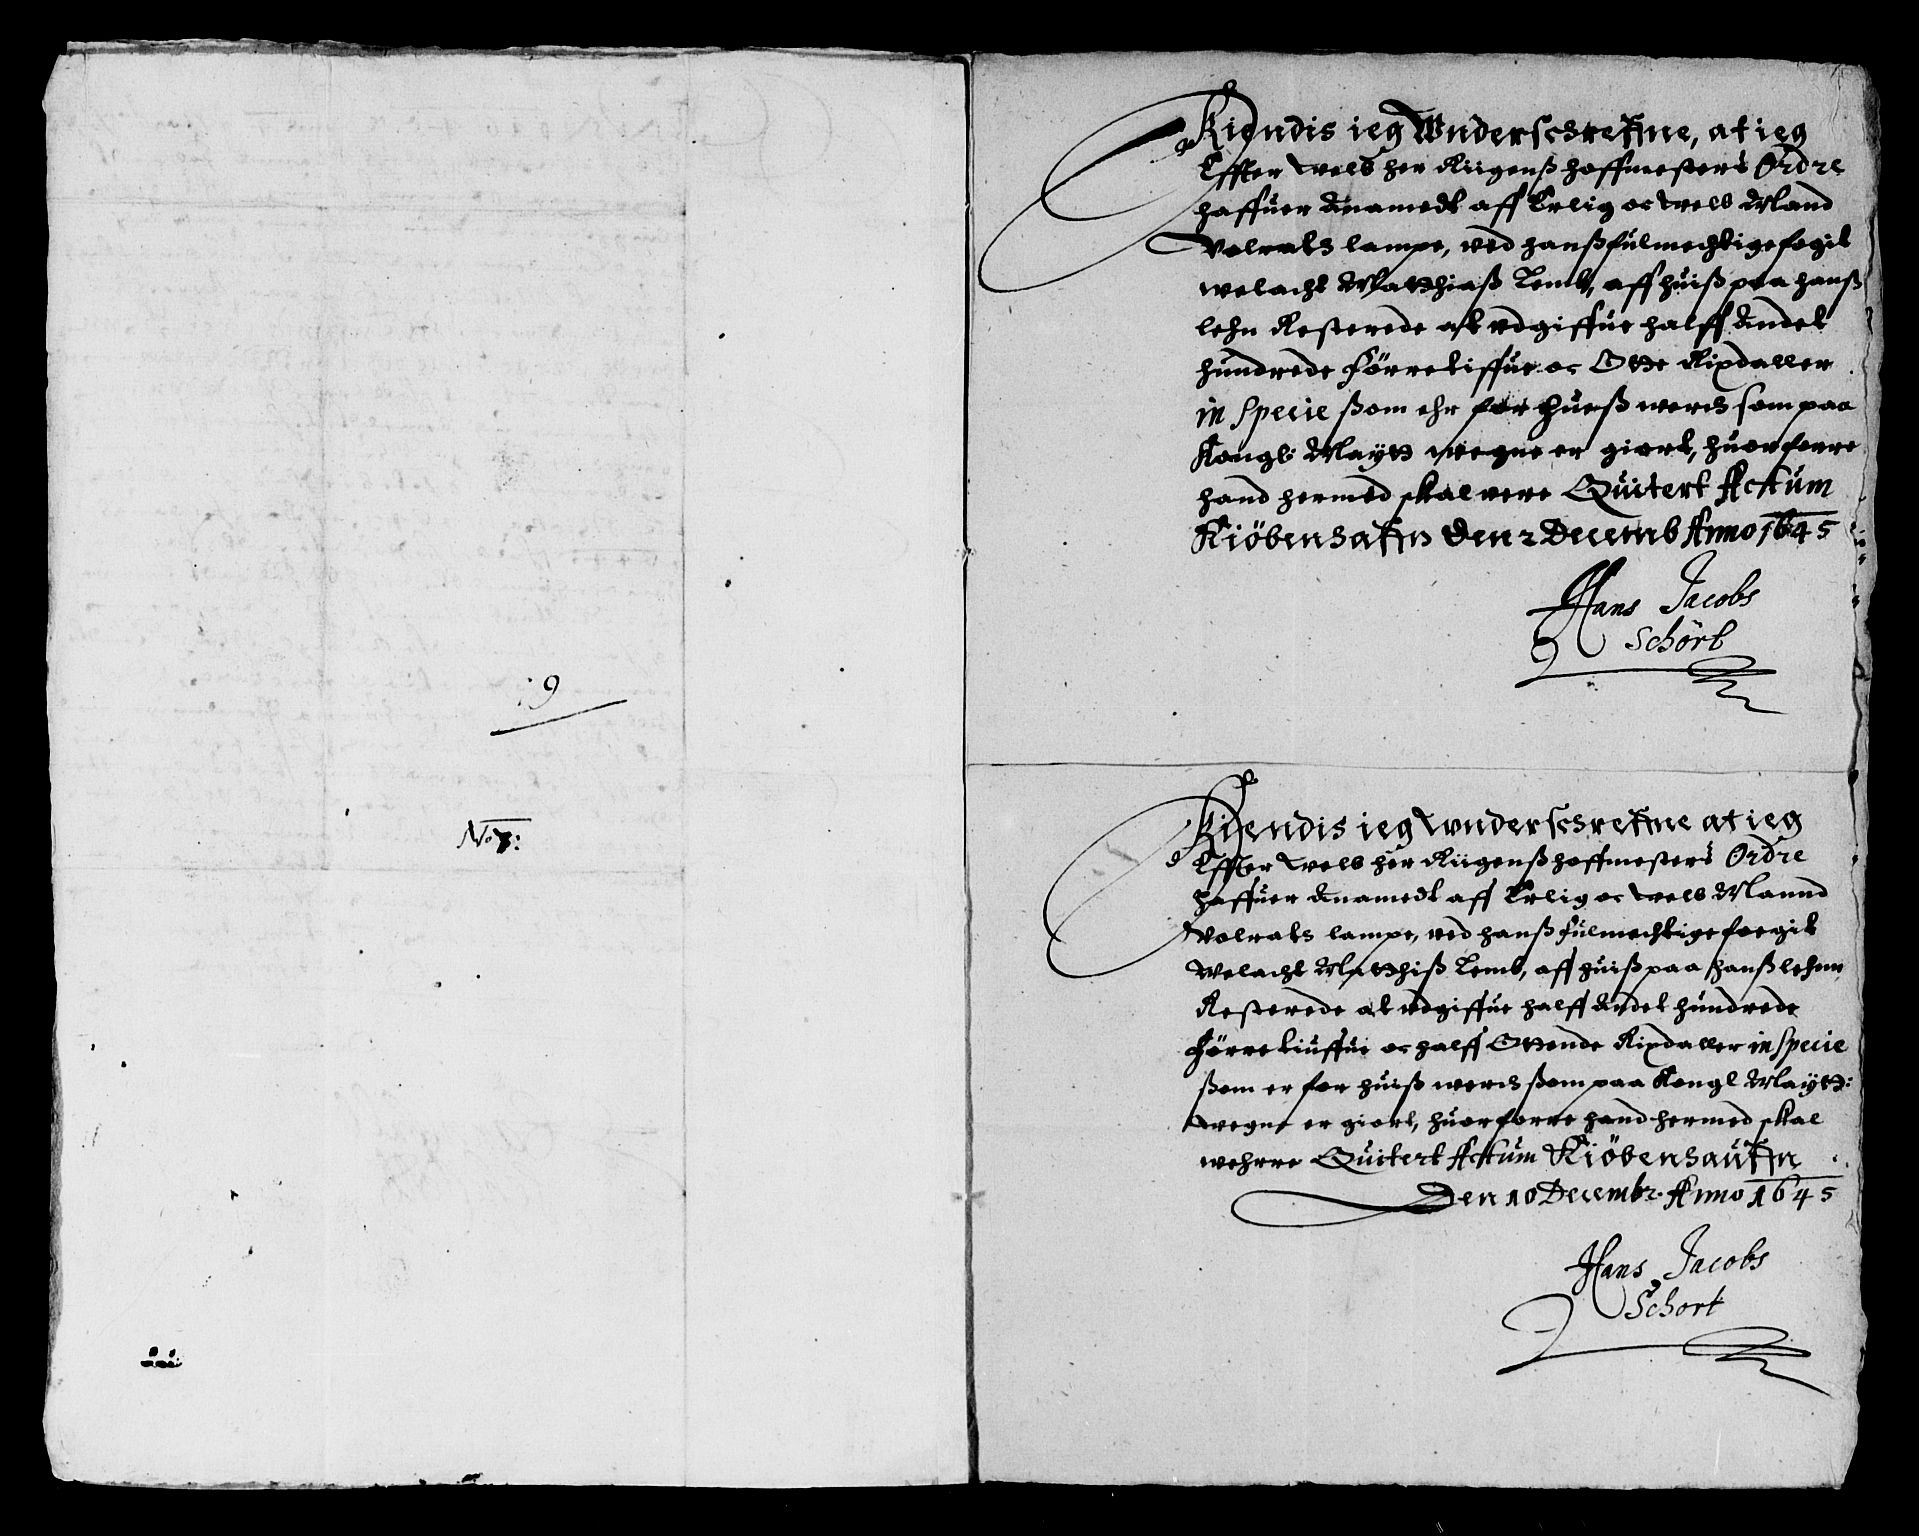 19
No 7:
Kiendis ieg Wnderschrefne, at ieg
Effter Welb her Riigenß hoffmesters Ordre
haffuer Anamedt aff Erlig oc Welb Mand
Volrats lampe, ved hanß fulmechtige fogit
welacht Matthiaß Lemb, aff huiß paa hanß
lehn Resterede at vdgiffue halff Andet
hundrede förretiffue oc Otte Rixdaller
in Specie ßom ehr for hueß werch som paa
Kongl: Maytt wegne er giort, huorforre
hand hermed skal vere Quitert Actum
Kiöbenhafn den 2 Decemb Anno 1645
Hans Jacobs
Schört
Kiendis ieg Wnderschrefne at ieg
Effter Welb her Riigenß hoffmesters Ordre
haffuer Anamedt aff Erlig oc Welb Mannd
Volrats lampe, ved hanß fulmechtige foegit
Welacht Matthiß Lemb, aff huiß paa hanß lehnn
Resterede at vdgiffue halff Andet hundrede
förretiuffue oc halff Ottende Rixdaller in Specie
ßom er for huiß werch ßom paa Kongl Maytt:
wegne er giort, huorforre hand hermed skal
wehrre Quitert Actum Kiöbenhaufn
Den 10 Decembr. Anno 1645
Hans Jacobs
Schort